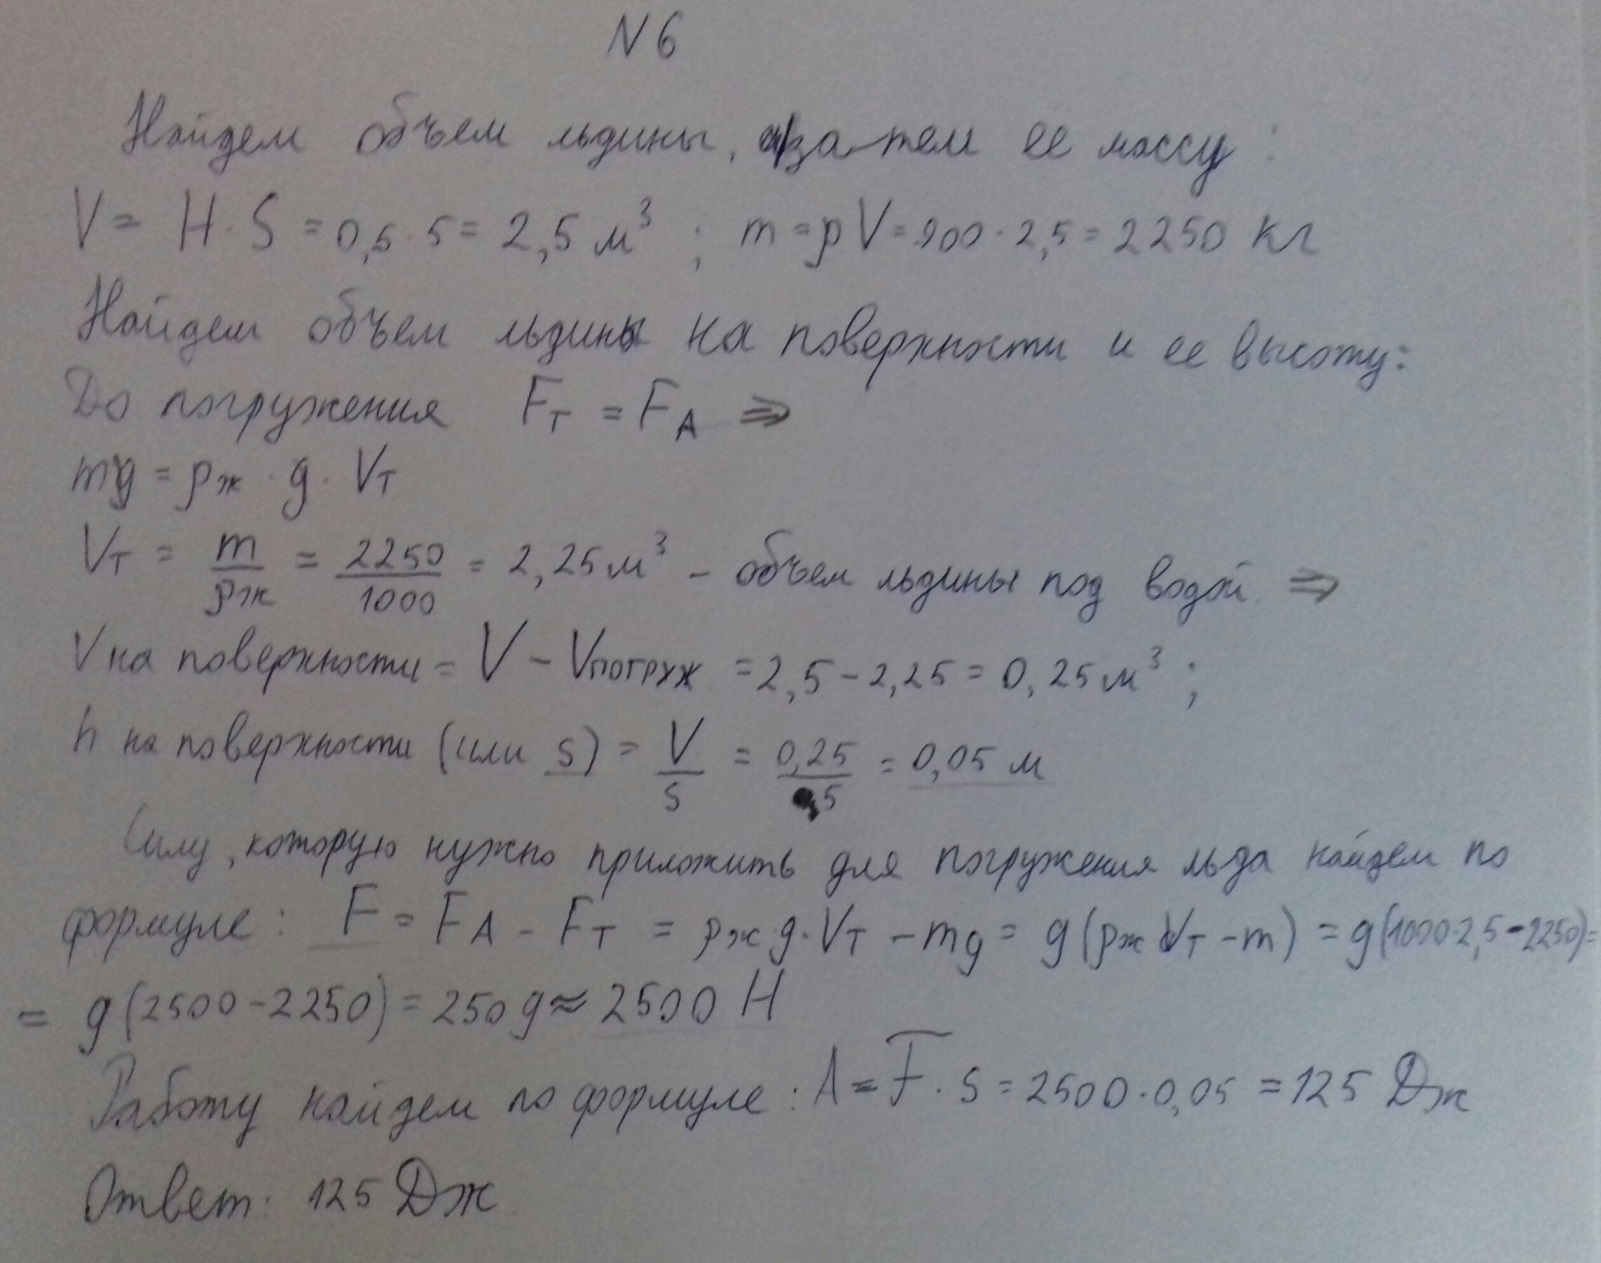 N 6
Найдем объем льдины, а затем ее массу:
V = H · S = 0,5 · 5 = 2,5 м³ ; m = ρV = 900 · 2,5 = 2250 кг
Найдем объем льдины на поверхности и ее высоту:
До погружения Fт = FА ⇒
mg = ρж · g · Vт
Vт = m/ρж = 2250/1000 = 2,25 м³ – объем льдины под водой ⇒
V на поверхности = V – Vпогруж = 2,5 – 2,25 = 0,25 м³ ;
h на поверхности (или s) = V/S = 0,25/5 = 0,05 м
Силу, которую нужно приложить для погружения льда найдем по
формуле: F = FА - Fт = ρж·g·Vт – mg = g(ρж Vт – m) = g(1000·2,5 - 2250) =
= g(2500 - 2250) = 250g ≈ 2500 Н
Работу найдем по формуле: A = F · s = 2500 · 0,05 = 125 Дж
Ответ: 125 Дж